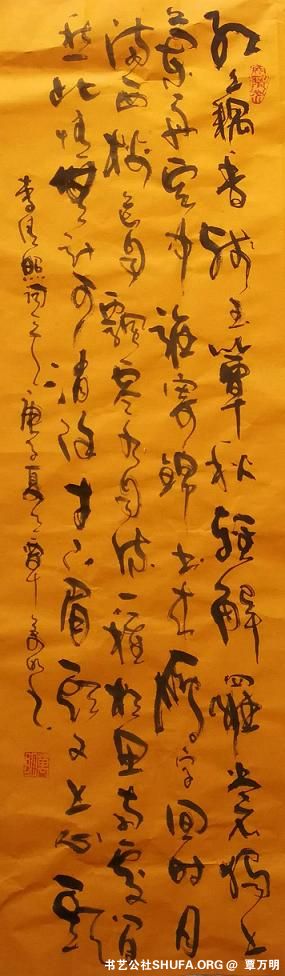 红藕香残玉簟秋轻解罗裳独上
兰舟云中谁寄锦书来雁字回时月
满西楼花自飘零水自流一种相思两处闲
愁此情无计可消除才下眉头又上心头
李清照词一庚子夏覃万明书
书艺公社SHUFA.ORG @ 覃万明